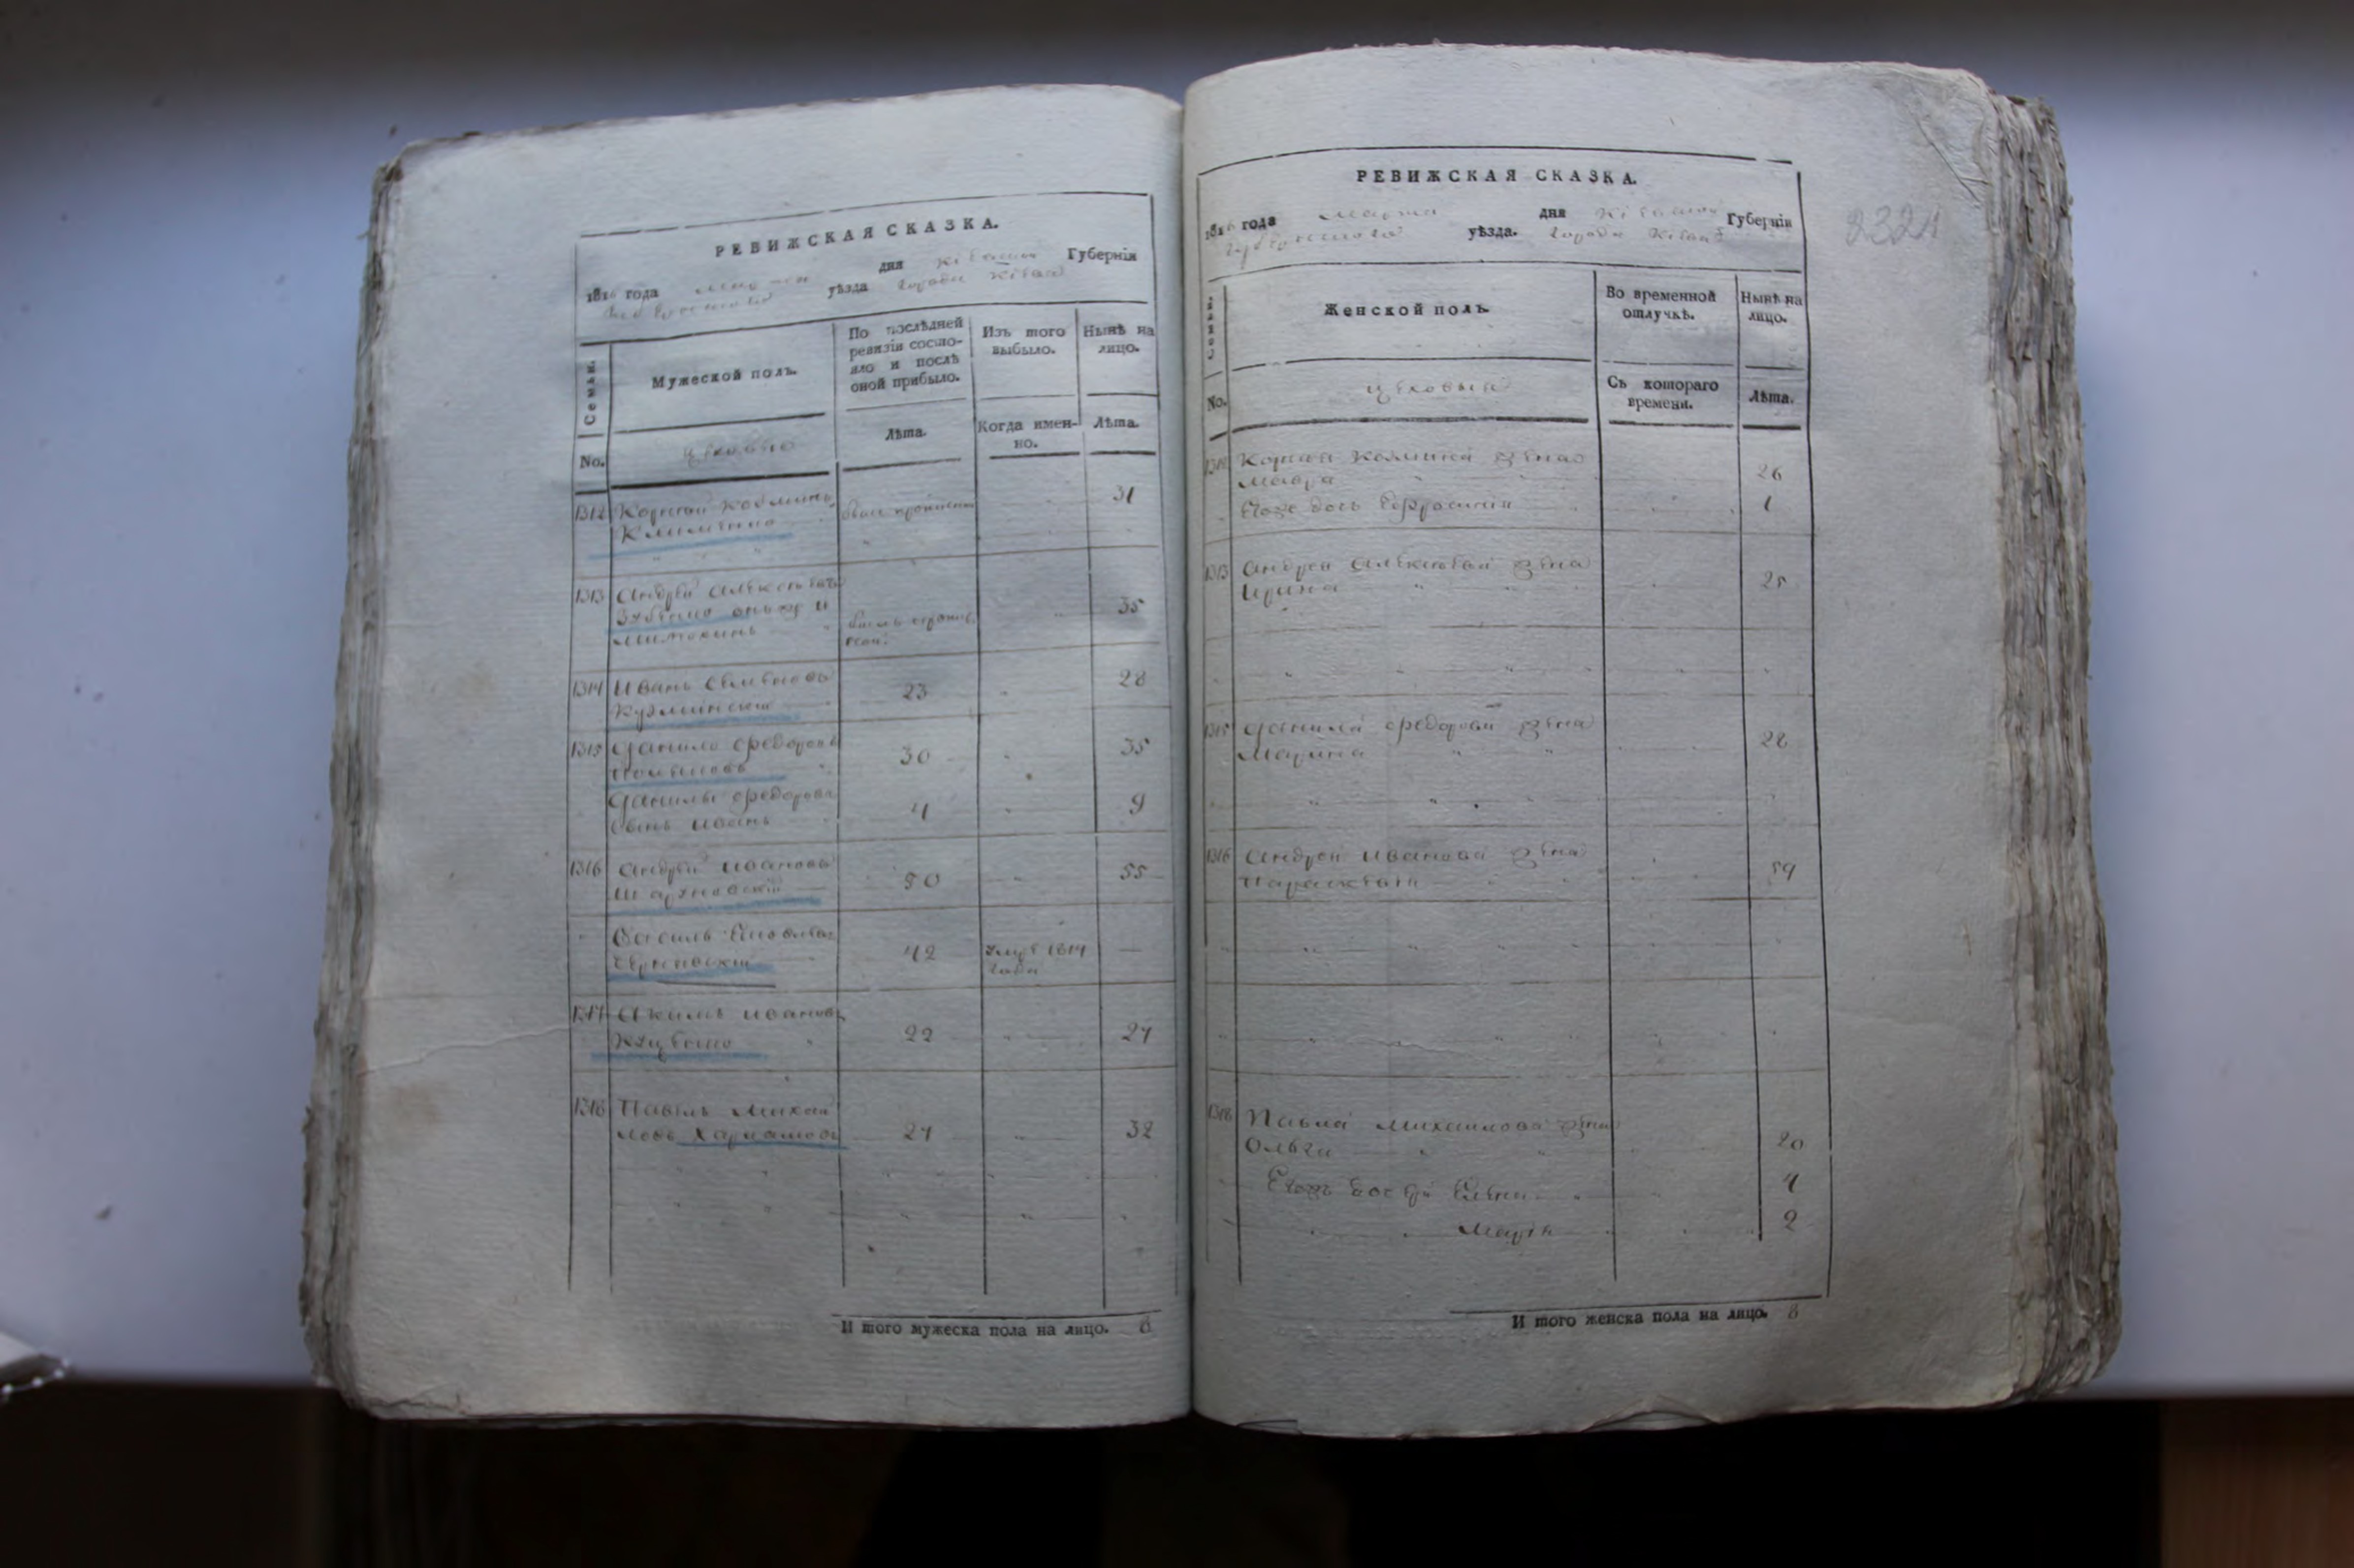 РЕВИЖСКАЯ СКАЗКА.
1816 года марта дня Кіевской Губерніи
уѣзда города Кіева
Семьи.
Мужеской полъ.
По послѣдней ревизіи состояло и послѣ оной прибыло.
Изъ того выбыло.
Нынѣ на лицо.
No.
цеховые
Лѣта.
Когда именно.
Лѣта.
1312 Корней Козминъ 31
Клименко
1313 Андрей Алексѣевъ
Зубенко онъ же и 35
1314 Иванъ Семеновъ 23 28
Кузминскій
1315 Данило Федоровъ 30 35
Данилы Федорова 4 9
сынъ Иванъ
1316 Андрей Ивановъ 50 55
42 умре 1814
года
1317 Акимъ Ивановъ
Куценко 22 27
1318 Павелъ Михай
ловъ Харламовъ 27 32
И того мужеска пола на лицо. 8
РЕВИЖСКАЯ СКАЗКА.
1816 года марта дня Кіевской Губерніи
уѣзда. города Кіева
Семьи.
Женской полъ.
Во временной отлучкѣ.
Нынѣ на лицо.
No.
цеховыя
Съ котораго времени.
Лѣта.
1312 Корнея Козмина жена
Мавра 26
Его же дочь Ефросинія 1
1313 Андрея Алексѣева жена
Ирина 25
1315 Данила Федорова жена
Марина 28
1316 Андрея Иванова жена
Параскевія 59
1318 Павла Михайлова жена
Ольга 20
Елена 4
Марія 2
И того женска пола на лицо. 8